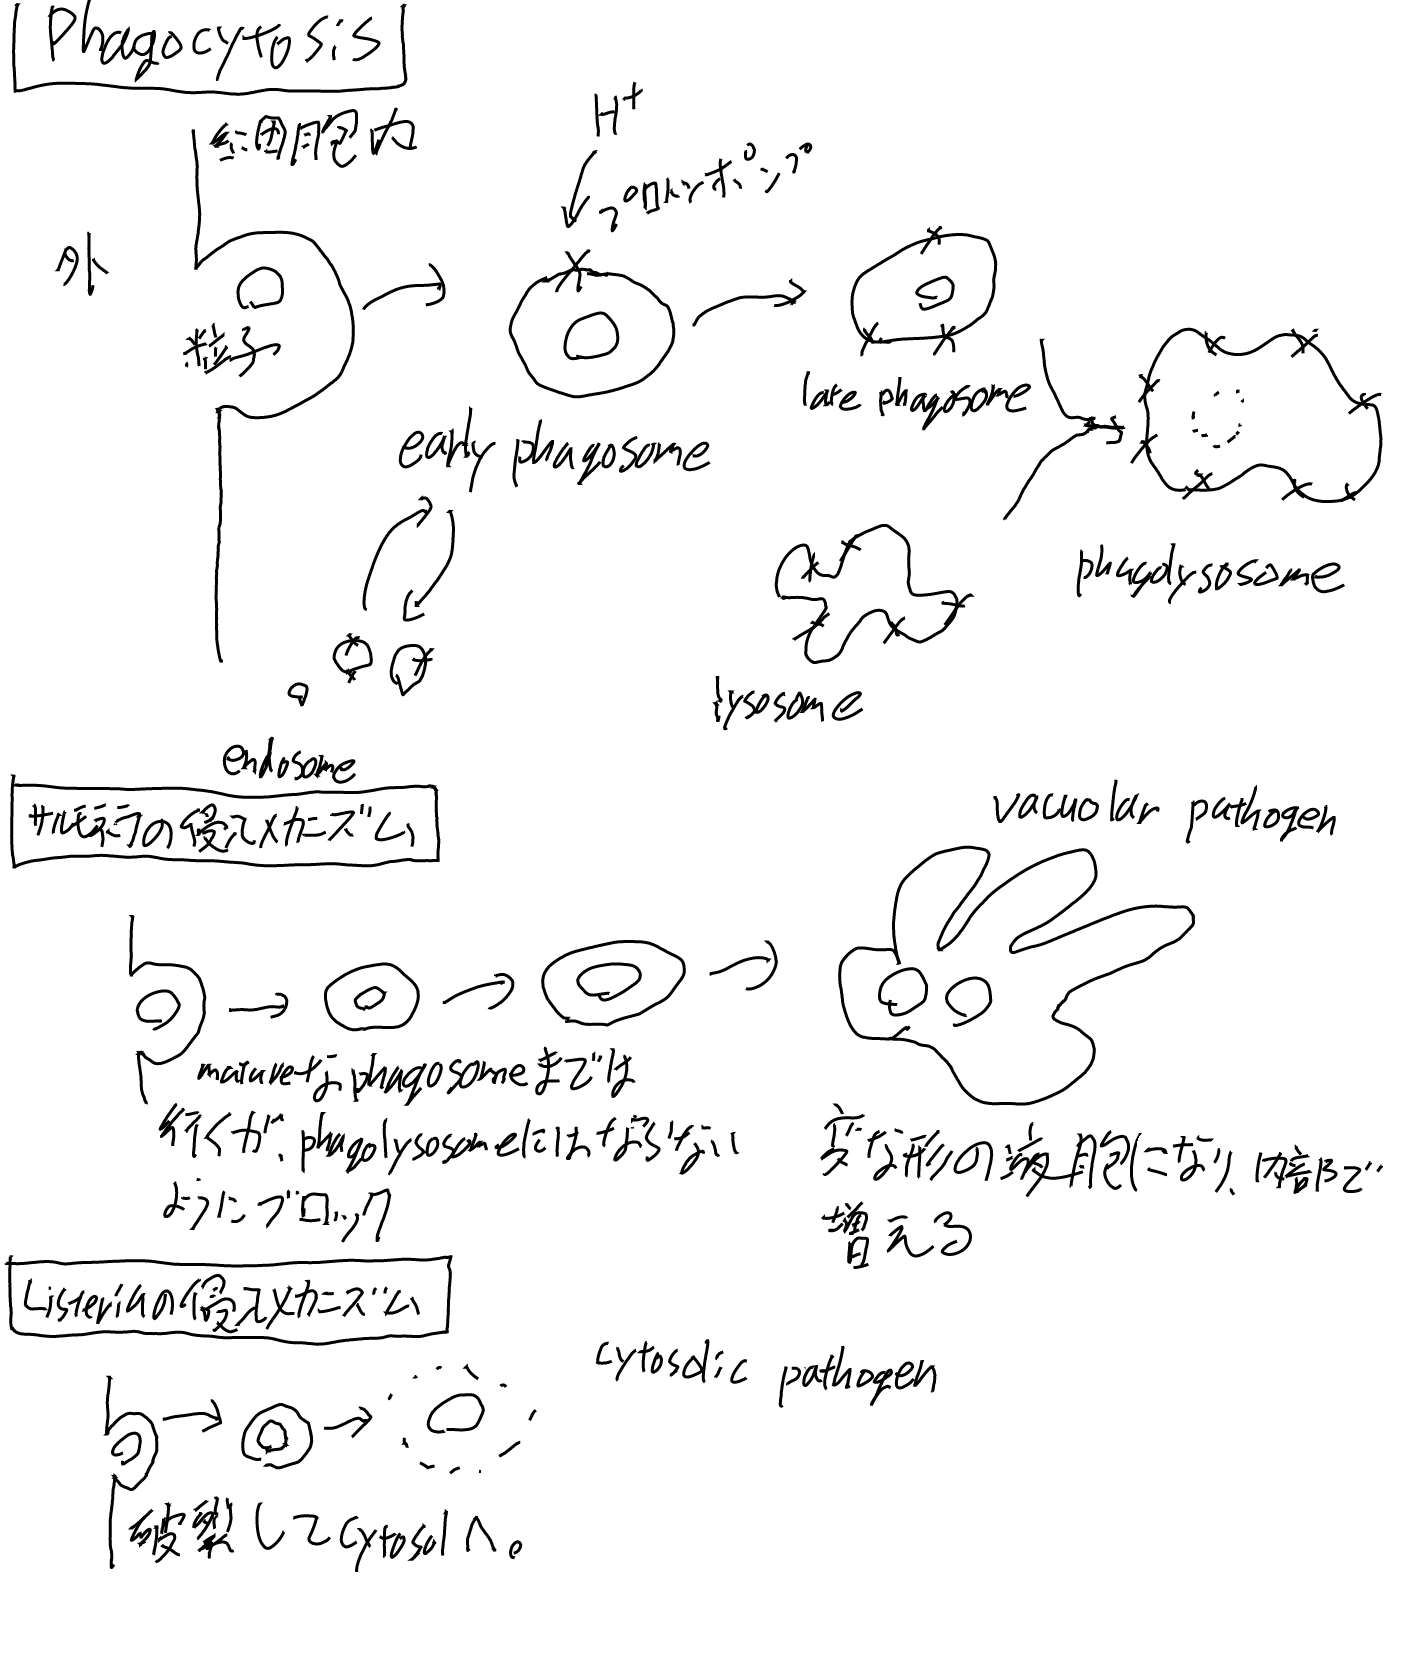 Phagocytosis
細胞内
外
粒子
H+
プロトンポンプ
early phagosome
late phagosome
phagolysosome
lysosome
endosome
サルモネラの侵入メカニズム
vacuolar pathogen
matureなphagosomeまでは
行くが、phagolysosomeにはならない
ようにブロック
変な形の液胞になり、内部で
増える
Listeriaの侵入メカニズム
cytosolic pathogen
破裂してcytosolへ。